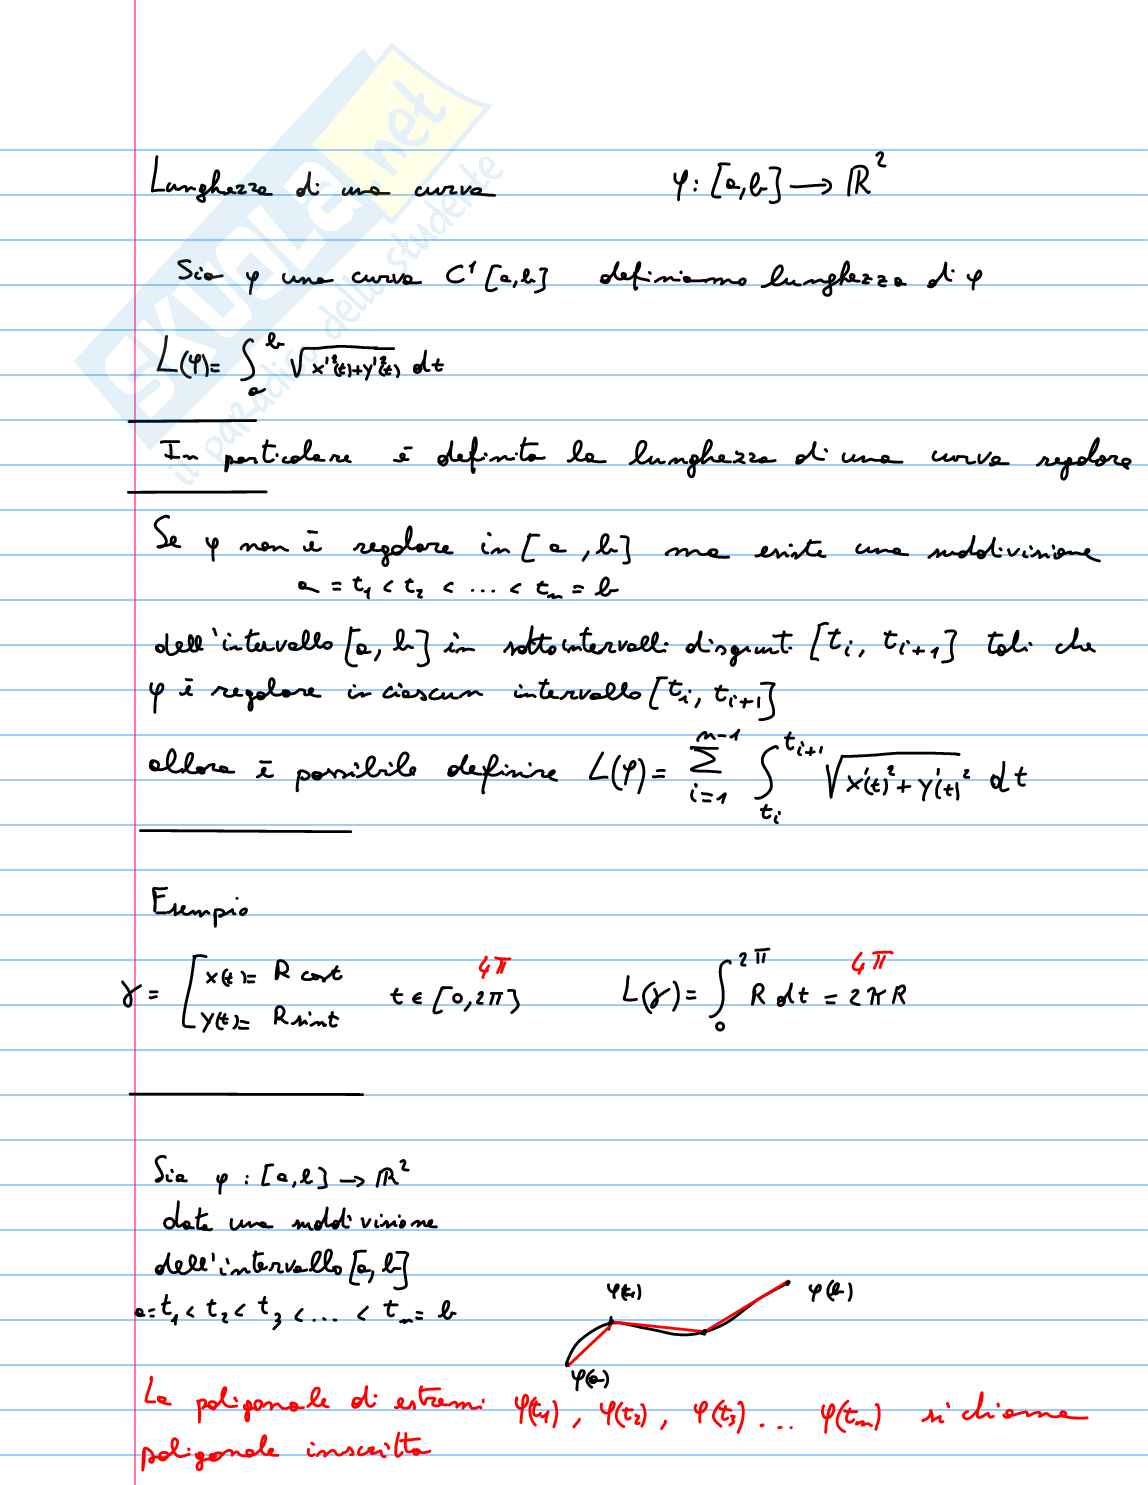 SKUOLA.net
il paradiso dello studente
Lunghezza di una curva φ: [a,b] → ℝ²
Sia φ una curva C¹[a,b] definiamo lunghezza di φ
L(φ)= ∫_a^b √(x'²(t)+y'²(t)) dt
In particolare è definita la lunghezza di una curva regolare
Se φ non è regolare in [a,b] ma esiste una suddivisione
a = t₁ < t₂ < ... < tₙ = b
dell'intervallo [a,b] in sottointervalli disgiunti [tᵢ, tᵢ₊₁] tali che
φ è regolare in ciascun intervallo [tᵢ, tᵢ₊₁]
allora è possibile definire L(φ)= ∑_{i=1}^{n-1} ∫_{tᵢ}^{tᵢ₊₁} √(x'(t)²+y'(t)²) dt
Esempio
4π 4π
γ = [ x(t)= R cost t ∈ [0,2π] L(γ)= ∫_0^{2π} R dt = 2πR
y(t)= R sint
Sia φ: [a,b] → ℝ²
data una suddivisione
dell'intervallo [a,b]
a=t₁ < t₂ < t₃ < ... < tₙ = b
φ(t₁) φ(b)
φ(a)
La poligonale di estremi φ(t₁), φ(t₂), φ(t₃) ... φ(tₙ) si chiama
poligonale inscritta